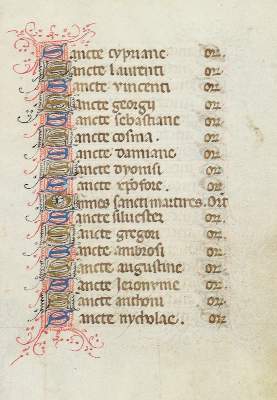 Sancte cypriane or.
Sancte laurenti or.
Sancte vincenti or.
Sancte georgii or.
Sancte sebastiane or.
Sancte cosma. or.
Sancte damiane or.
Sancte dyonisi or.
Sancte xpofore. or.
Omnes sancti martires. Orit
Sancte siluester or.
Sancte gregori or.
Sancte ambrosi or.
Sancte augustine or.
Sancte jeronyme or.
Sancte anthoni or.
Sancte nycholae. or.